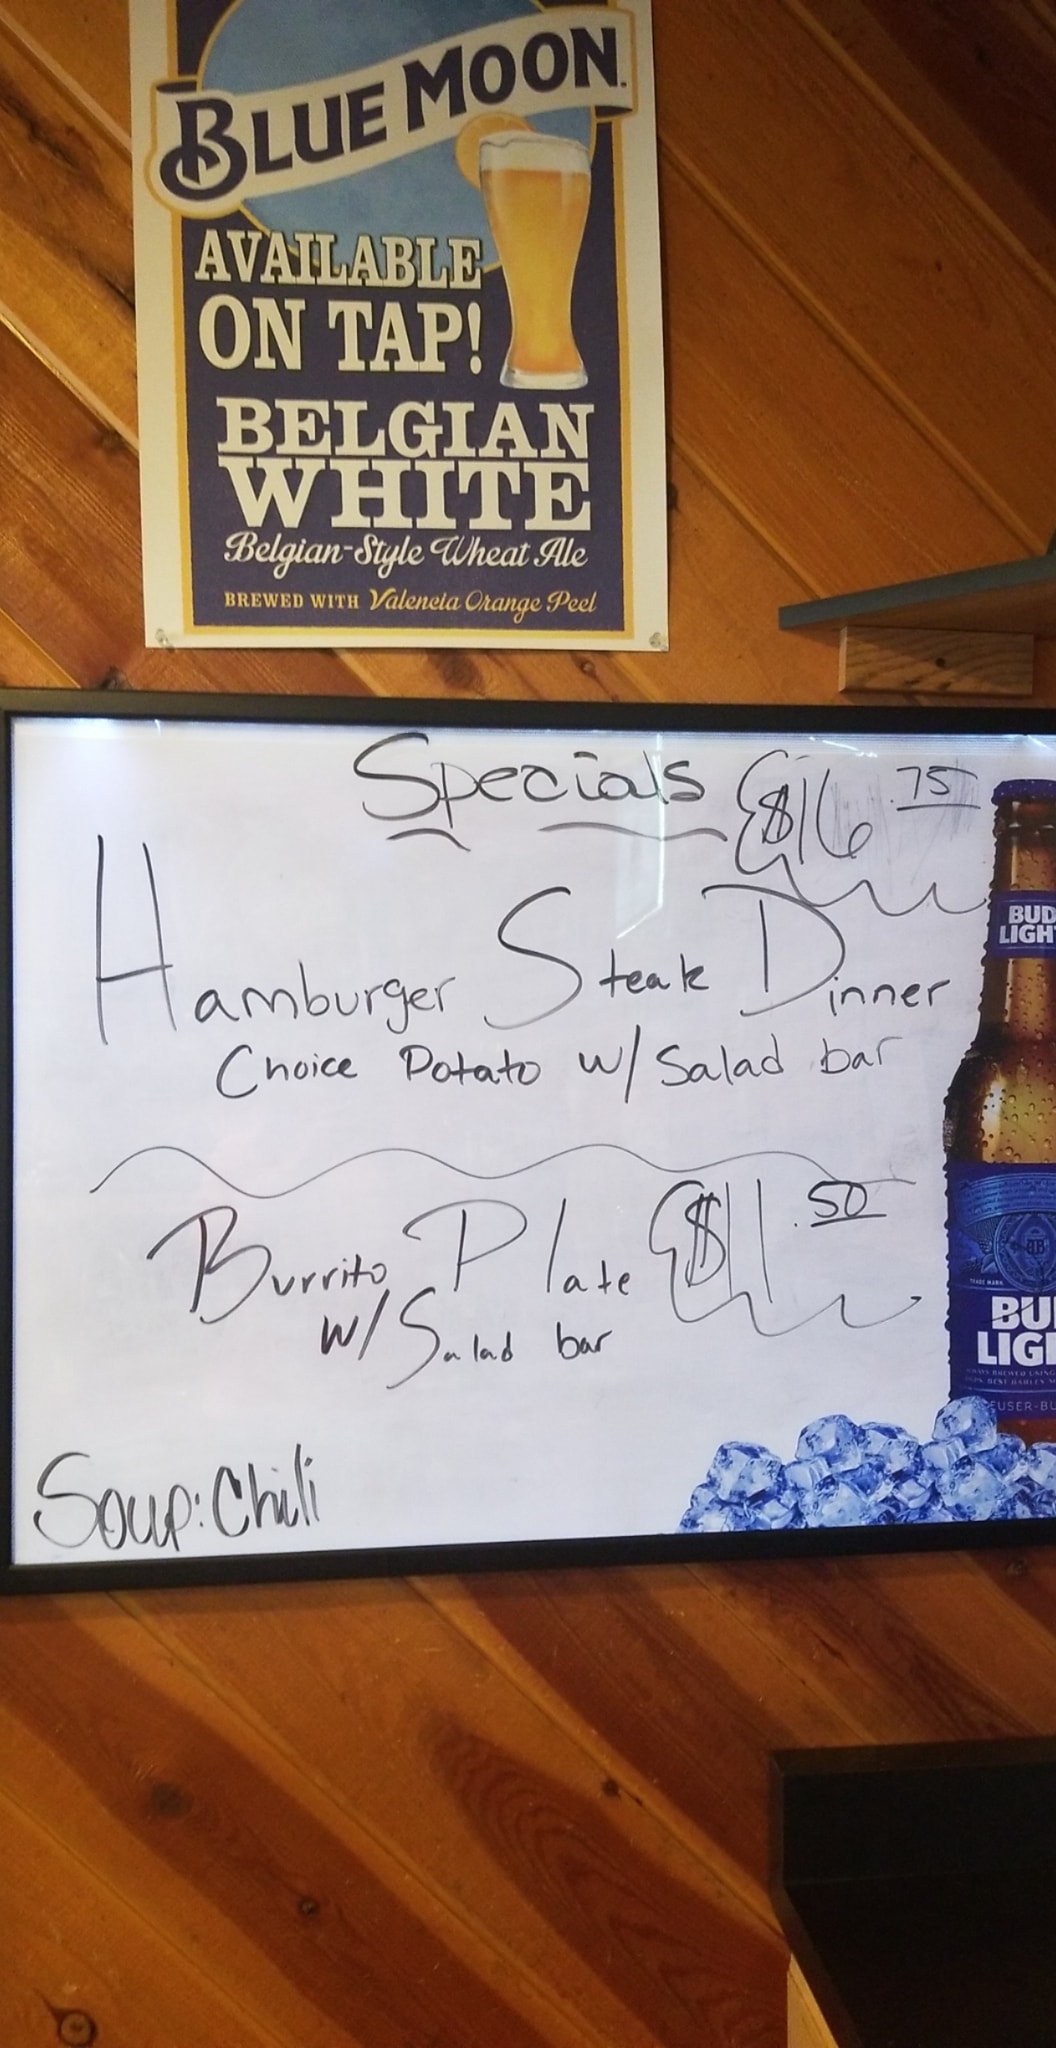 BLUE MOON
AVAILABLE
ON TAP!
BELGIAN
WHITE
Belgian-Style Wheat Ale
BREWED WITH Valencia Orange Peel
Specials $16.75
Hamburger Steak Dinner
Choice Potato w/ Salad bar
Burrito Plate $11.50
w/ Salad bar
Soup: Chili
BUD
LIGHT
TRADE MARK
BU
LIG
EUSER-BU